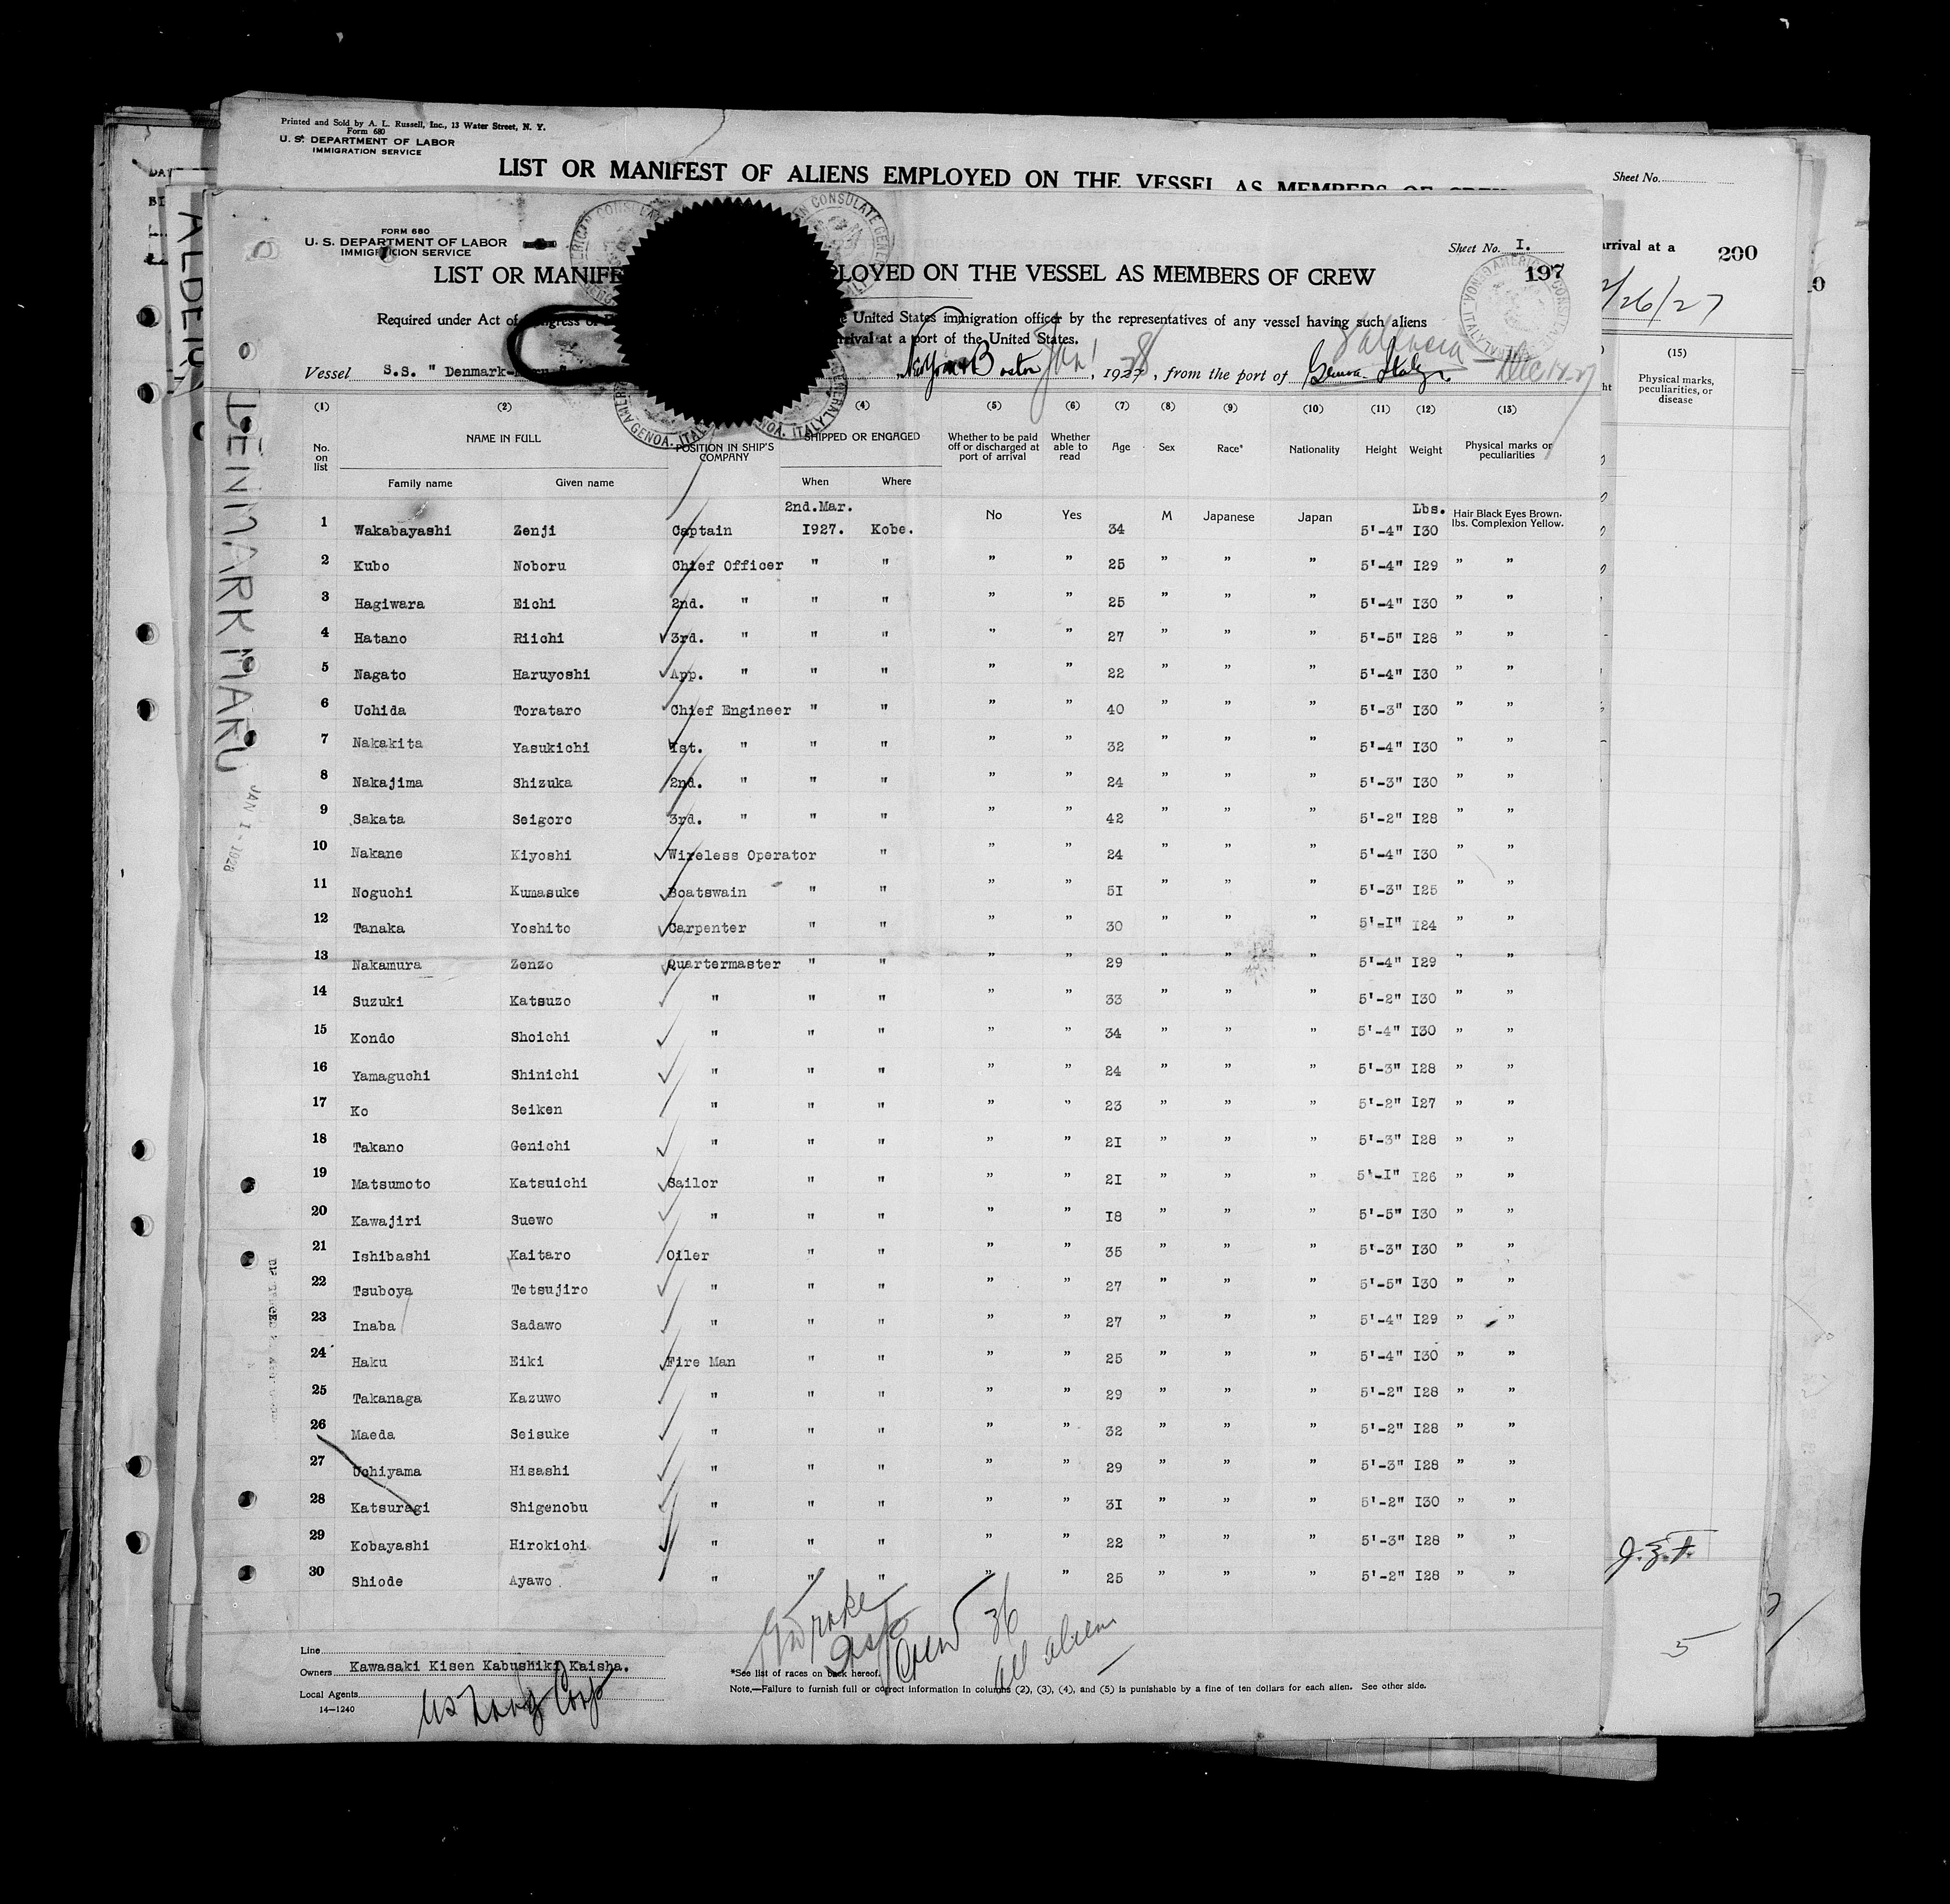 Printed and Sold by A. L. Russell, Inc., 13 Water Street, N. Y.
Form 680
U. S. DEPARTMENT OF LABOR
IMMIGRATION SERVICE
LIST OR MANIFEST OF ALIENS EMPLOYED ON THE VESSEL AS MEMBERS OF CREW
Sheet No.
arrival at a
200
/26/27
(15)
Physical marks, peculiarities, or disease
FORM 680
U. S. DEPARTMENT OF LABOR
IMMIGRATION SERVICE
Sheet No. I.
197
LIST OR MANIFE LOYED ON THE VESSEL AS MEMBERS OF CREW
Required under Act of Congress of United States immigration officer by the representatives of any vessel having such aliens
arrival at a port of the United States.
Vessel S.S. " Denmark-Maru " New York Boston Jan 1, 1928, from the port of Genoa Italy Dec 14-27
(1) (2) (4) (5) (6) (7) (8) (9) (10) (11) (12) (13)
No. on list NAME IN FULL POSITION IN SHIP'S COMPANY SHIPPED OR ENGAGED Whether to be paid off or discharged at port of arrival Whether able to read Age Sex Race* Nationality Height Weight Physical marks or peculiarities
Family name Given name When Where
1 Wakabayashi Zenji Captain 2nd.Mar. I927. Kobe. No Yes 34 M Japanese Japan 5'-4" Lbs. I30 Hair Black Eyes Brown. lbs. Complexion Yellow.
2 Kubo Noboru Chief Officer " " " " 25 " " " 5'-4" I29 " "
3 Hagiwara Eichi 2nd. " " " " " 25 " " " 5'-4" I30 " "
4 Hatano Riichi 3rd. " " " " " 27 " " " 5'-5" I28 " "
5 Nagato Haruyoshi App. " " " " " 22 " " " 5'-4" I30 " "
6 Uchida Torataro Chief Engineer " " " " 40 " " " 5'-3" I30 " "
7 Nakakita Yasukichi Ist. " " " " " 32 " " " 5'-4" I30 " "
8 Nakajima Shizuka 2nd. " " " " " 24 " " " 5'-3" I30 " "
9 Sakata Seigoro 3rd. " " " " " 42 " " " 5'-2" I28 " "
10 Nakane Kiyoshi Wireless Operator " " " 24 " " " 5'-4" I30 " "
11 Noguchi Kumasuke Boatswain " " " " 5I " " " 5'-3" I25 " "
12 Tanaka Yoshito Carpenter " " " " 30 " " " 5'-I" I24 " "
13 Nakamura Zenzo Quartermaster " " " " 29 " " " 5'-4" I29 " "
14 Suzuki Katsuzo " " " " " 33 " " " 5'-2" I30 " "
15 Kondo Shoichi " " " " " 34 " " " 5'-4" I30 " "
16 Yamaguchi Shinichi " " " " " 24 " " " 5'-3" I28 " "
17 Ko Seiken " " " " " 23 " " " 5'-2" I27 " "
18 Takano Genichi " " " " " 2I " " " 5'-3" I28 " "
19 Matsumoto Katsuichi Sailor " " " " 2I " " " 5'-I" I26 " "
20 Kawajiri Suewo " " " " " I8 " " " 5'-5" I30 " "
21 Ishibashi Kaitaro Oiler " " " " 35 " " " 5'-3" I30 " "
22 Tsuboya Tetsujiro " " " " " 27 " " " 5'-5" I30 " "
23 Inaba Sadawo " " " " " 27 " " " 5'-4" I29 " "
24 Haku Eiki Fire Man " " " " 25 " " " 5'-4" I30 " "
25 Takanaga Kazuwo " " " " " 29 " " " 5'-2" I28 " "
26 Maeda Seisuke " " " " " 32 " " " 5'-2" I28 " "
27 Uchiyama Hisashi " " " " " 29 " " " 5'-3" I28 " "
28 Katsuragi Shigenobu " " " " " 3I " " " 5'-2" I30 " "
29 Kobayashi Hirokichi " " " " " 22 " " " 5'-3" I28 " "
30 Shiode Ayawo " " " " " 25 " " " 5'-2" I28 " "
Crew 36
all aliens
Line
Owners Kawasaki Kisen Kabushiki Kaisha.
Local Agents
14—1240
*See list of races on back hereof.
Note.—Failure to furnish full or correct information in columns (2), (3), (4), and (5) is punishable by a fine of ten dollars for each alien. See other side.
DENMARK MARU
JAN 1 - 1928
5